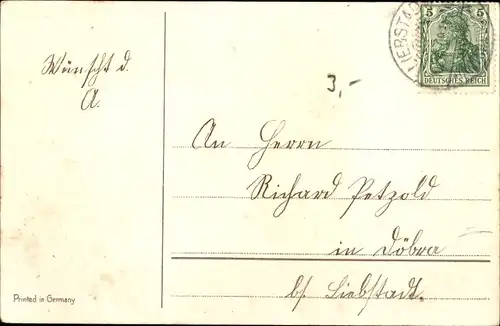 5 5
DEUTSCHES REICH
LIEBSTAD
Wünscht d.
A.
3,-
An Herrn
Richard Petzold
in Döbra
bs. Liebstadt.
Printed in Germany